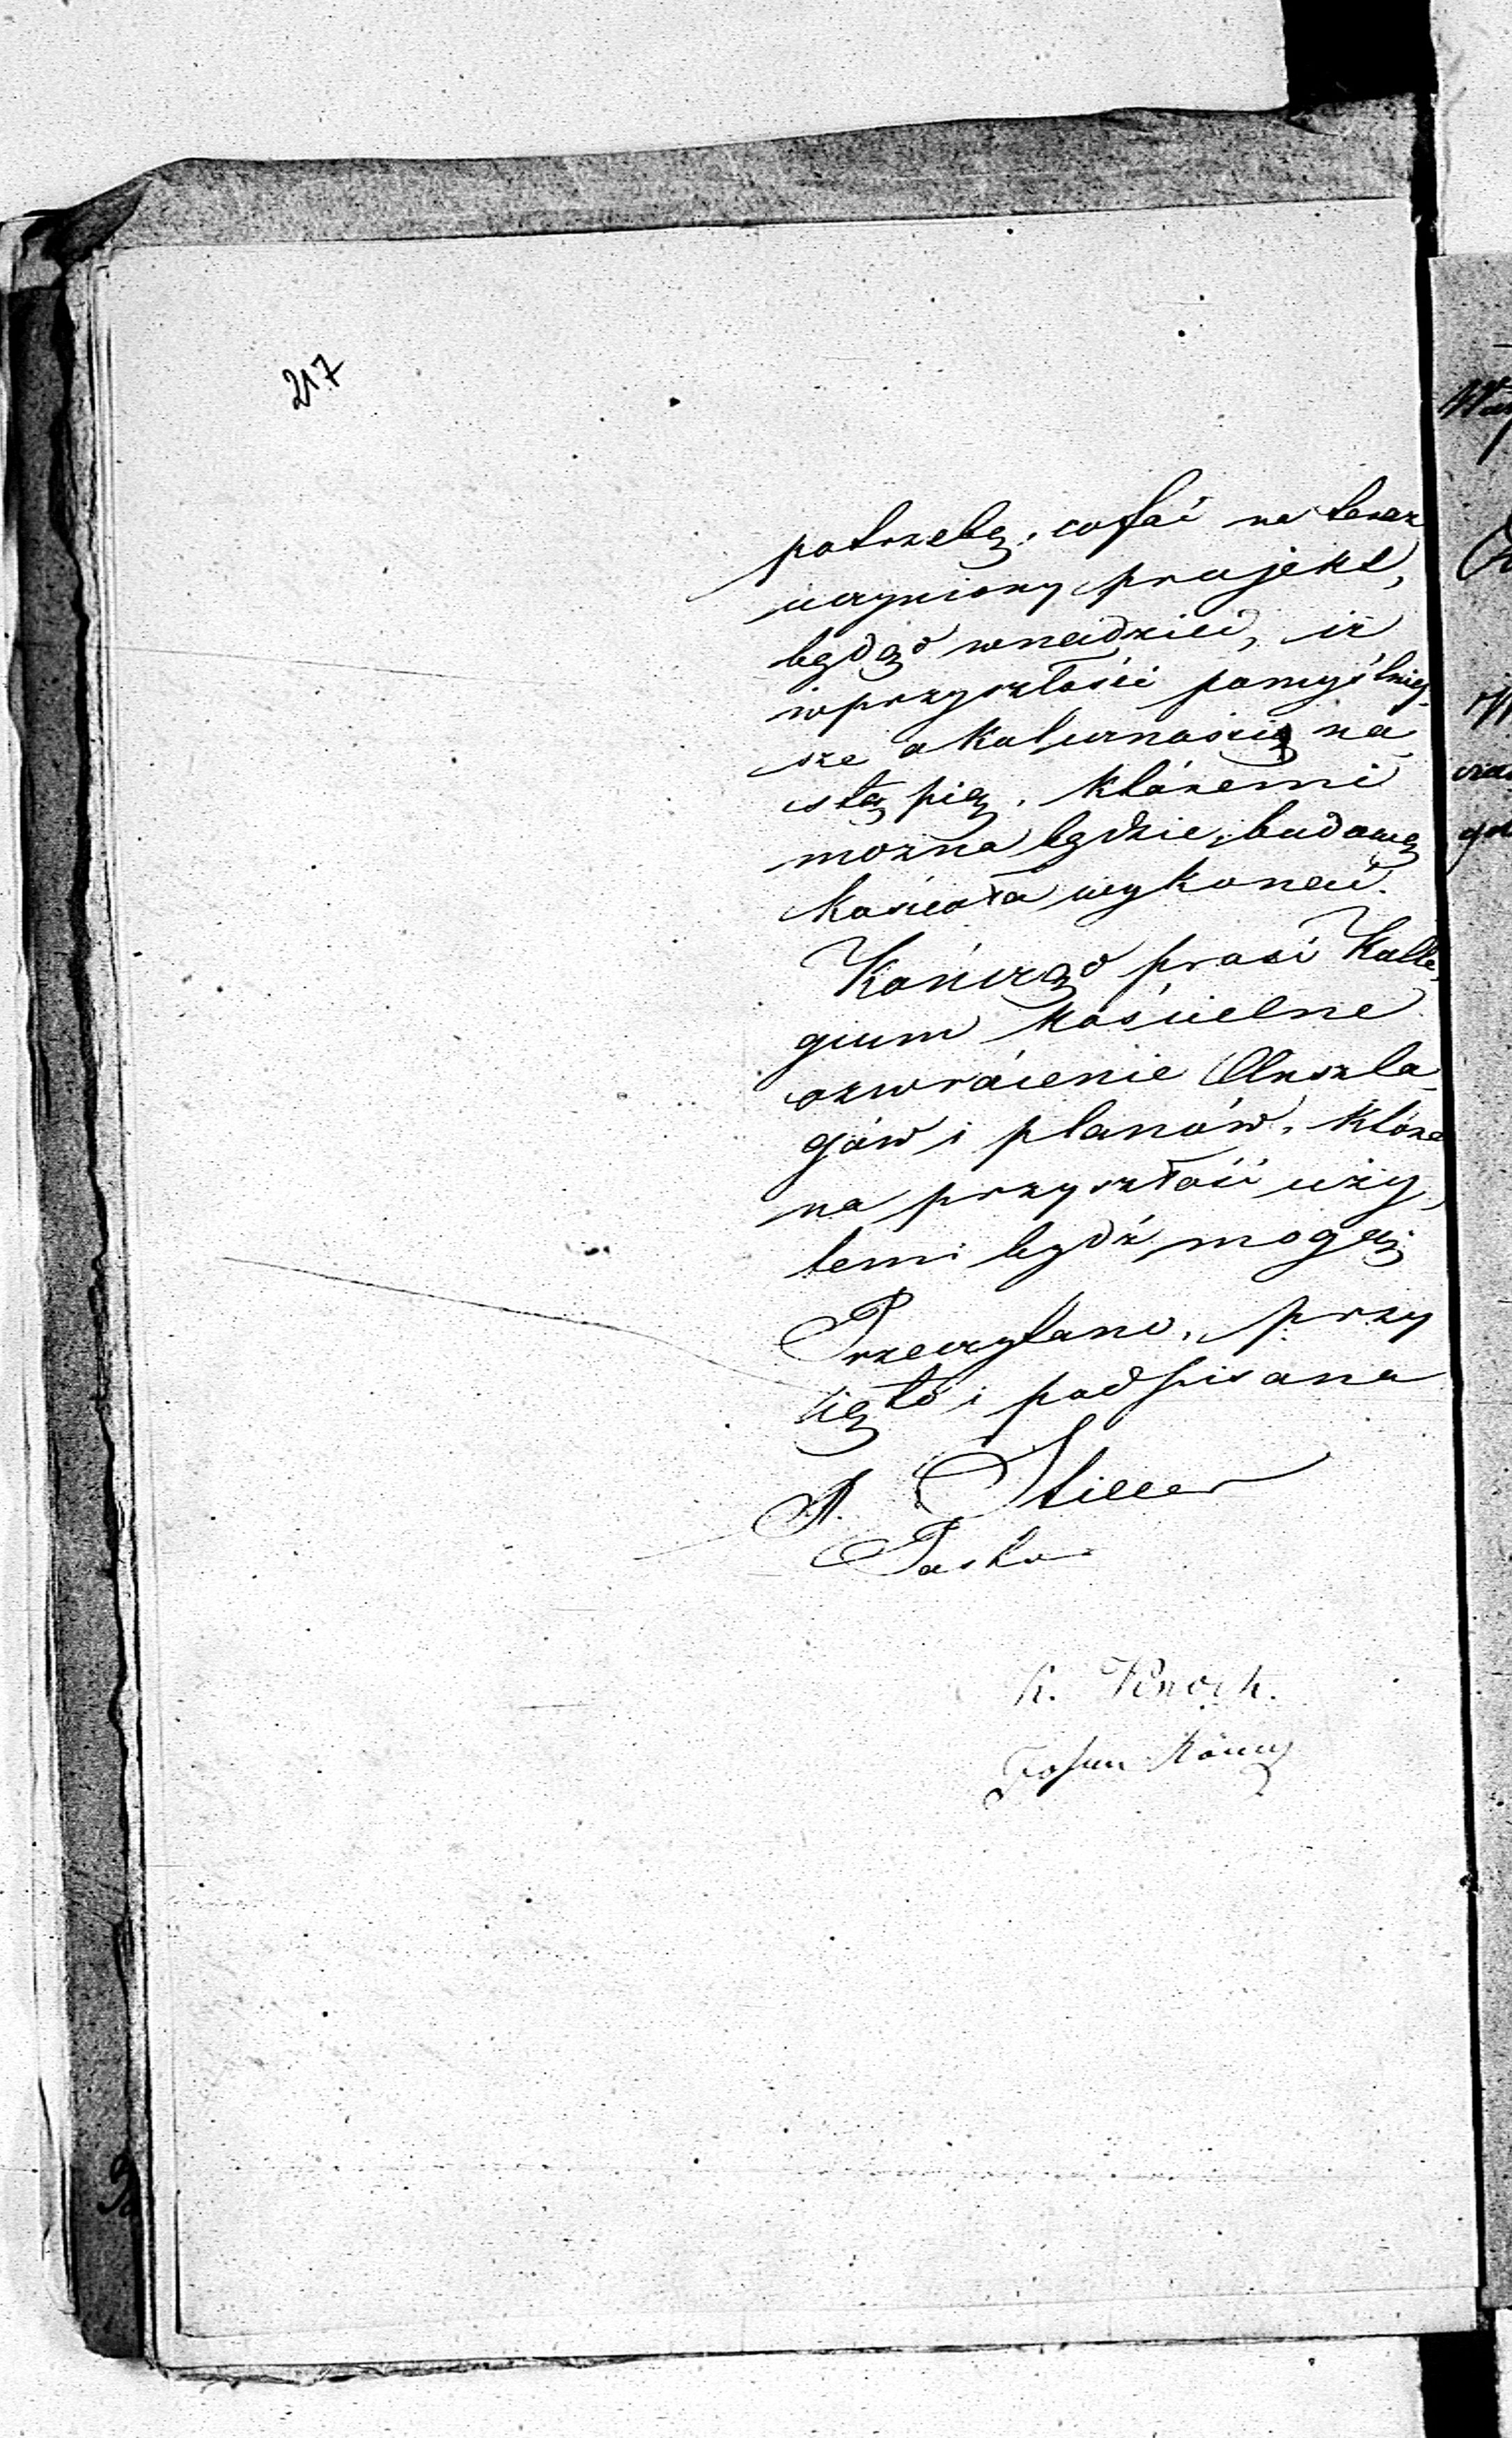 217
potrzebę, cofać na teraz
uczyniony projekt,
będąc w nadziei, iż
w przyszłości pomyślniej-
sze okoliczności na-
stąpią, któremi
można będzie budowę
kościoła wykonać.
Kończąc prosi Kolle-
gium kościelne
o zwrócenie Anszla-
gów i planów, które
na przyszłość uży-
temi bydź mogą
Przeczytano, przy
jęto i podpisano
A. Stiller
Pastor
K. Knoch.